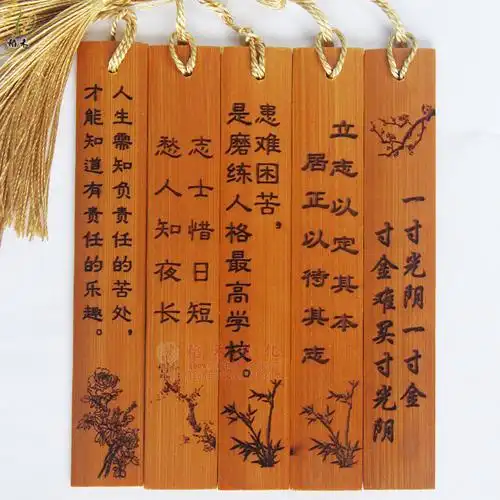 人生需知负责任的苦处，
才能知道有责任的乐趣。
志士惜日短
愁人知夜长
患难困苦，
是磨练人格最高学校。
立志以定其本
居正以待其志
一寸光阴一寸金
寸金难买寸光阴